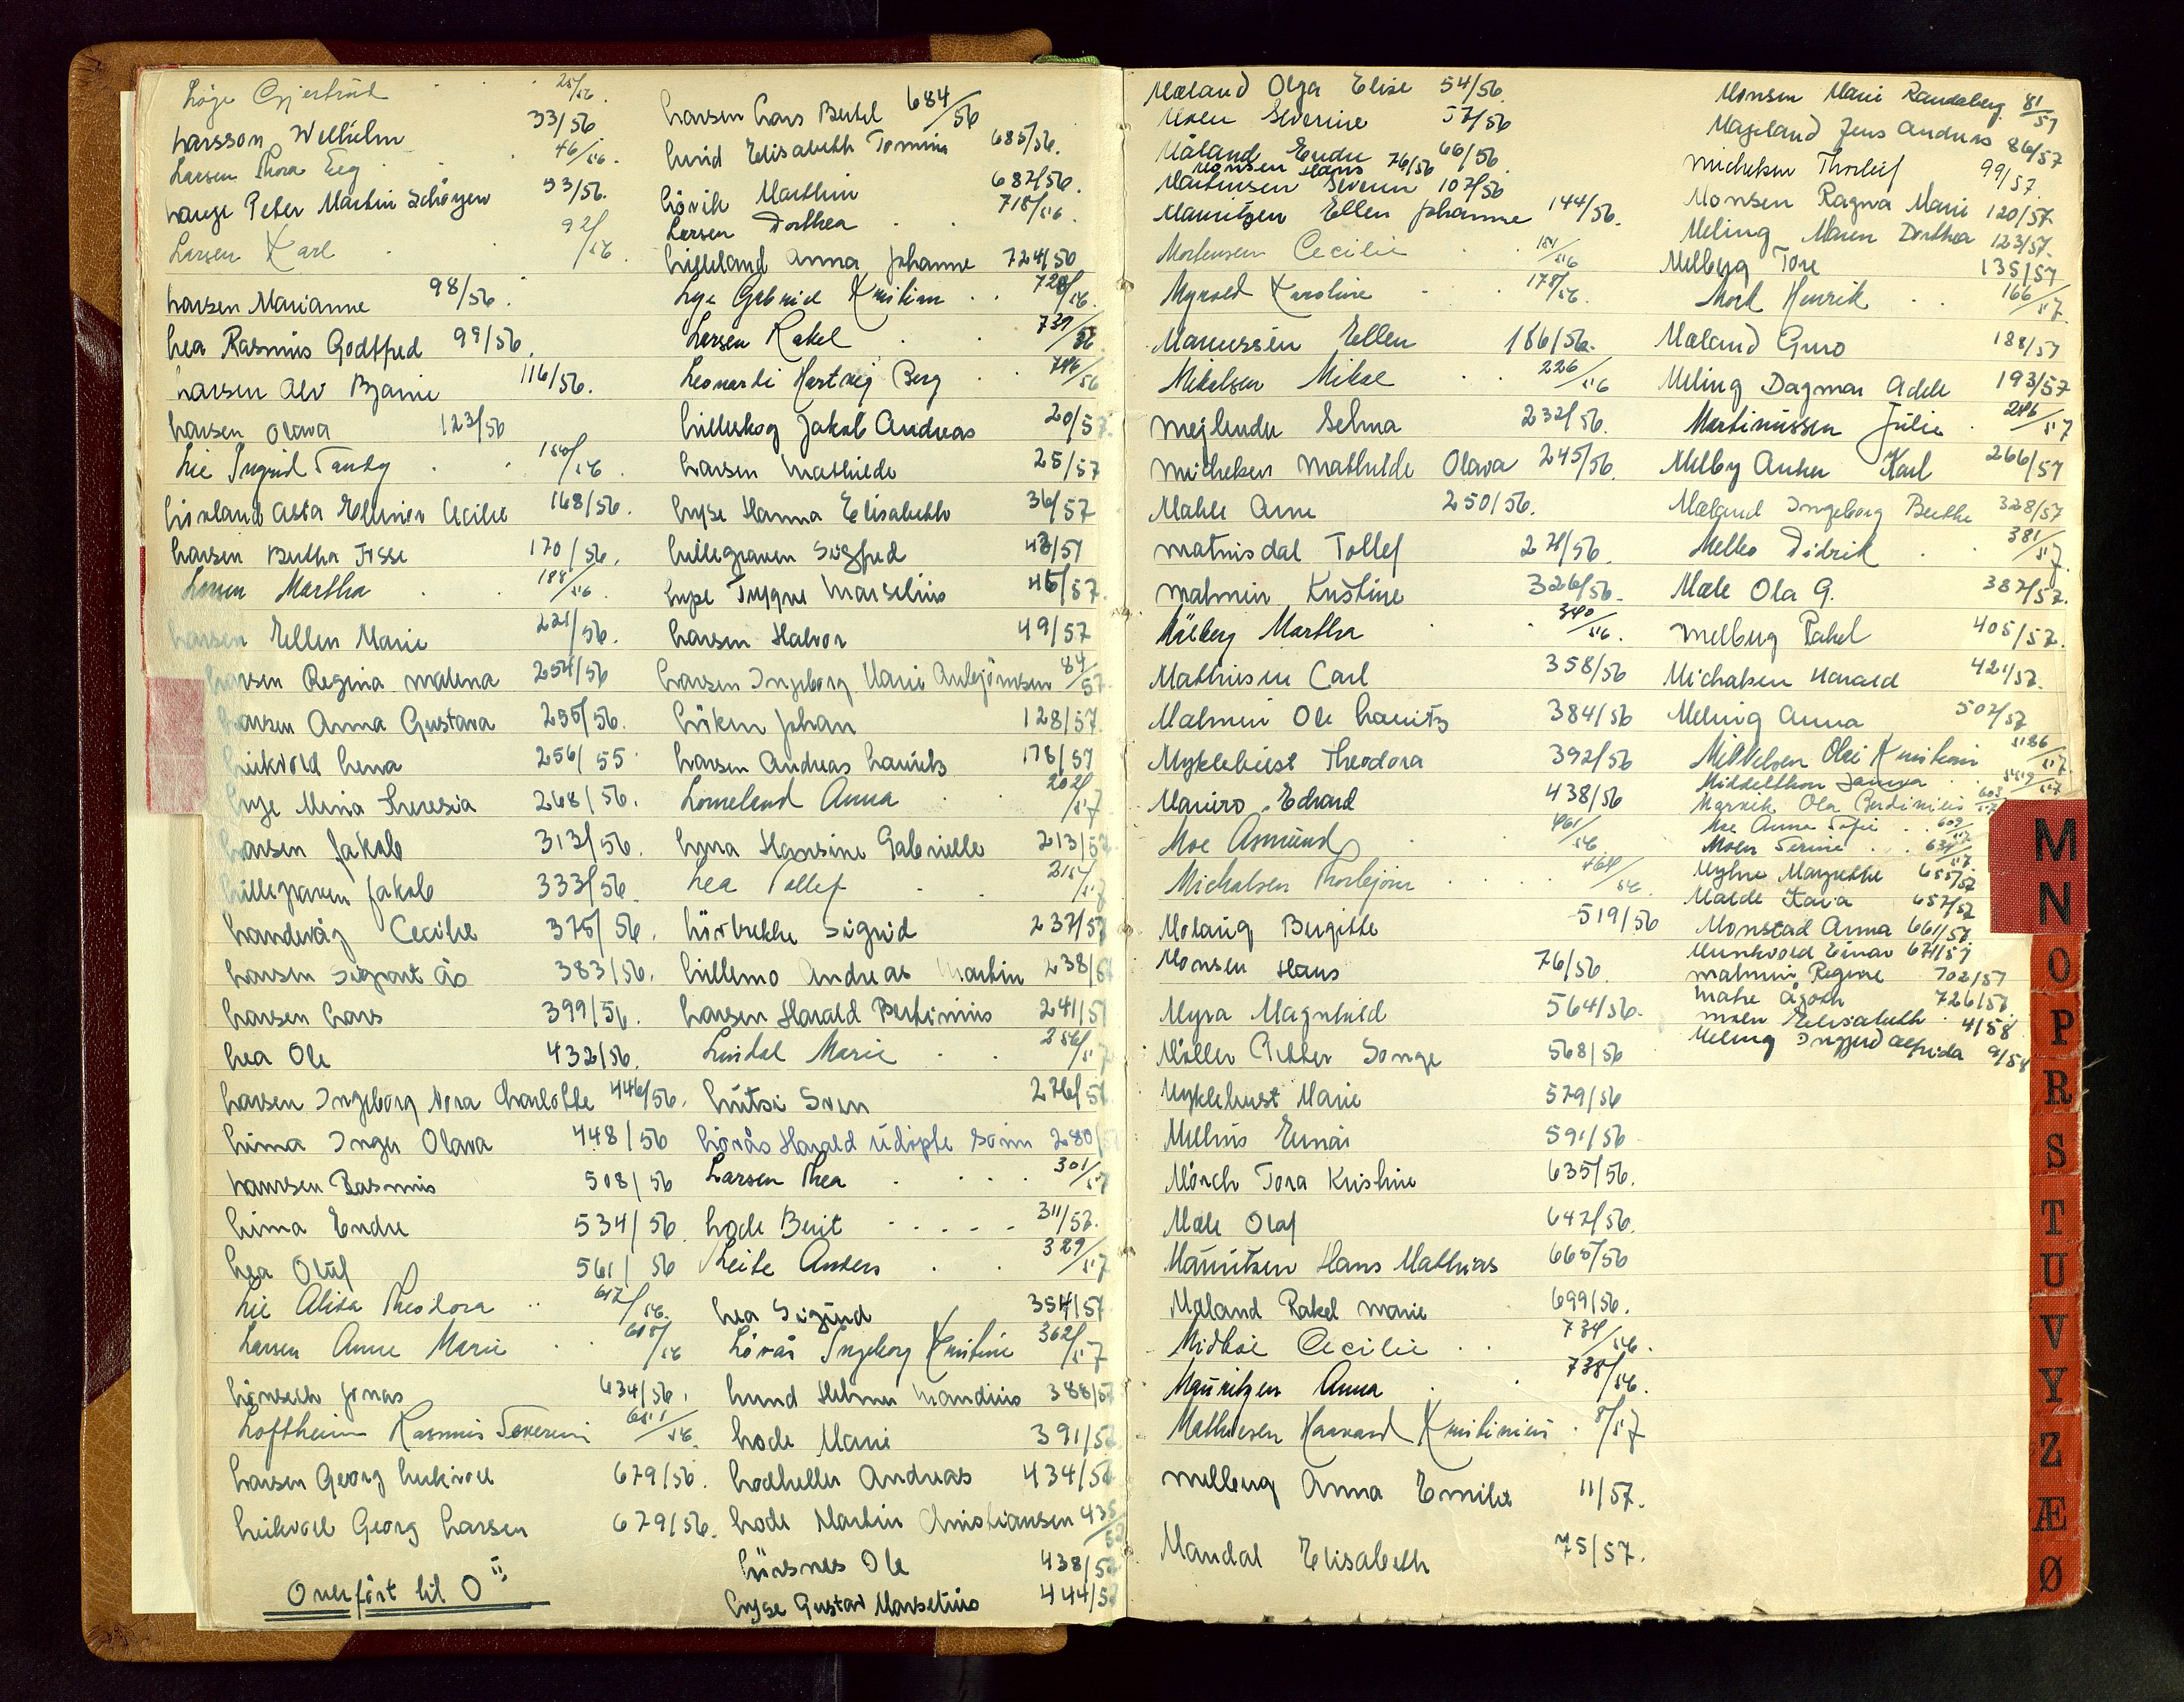 Löge Gjertrud 25/56
Larsson Wilhelm 33/56
Larsen Thora Eeg 46/56.
Lange Peter Martin Schöyen 53/56.
Larsen Karl 92/56
Larsen Marianne 98/56.
Lea Rasmus Godtfred 99/56.
Larsen Alv Bjarne 116/56.
Larsen Olava 123/56
Lie Ingrid Tandy 150/56
Lövland Asta Ellinor Cecilie 168/56.
Larsen Bertha Tisse 170/56.
Larsen Martha 188/56.
Larsen Ellen Marie 221/56.
Larsen Regina Malena 254/56
Larsen Anna Gustava 255/56.
Leikvold Lena 256/55
Lyse Mina Theresia 268/56.
Larsen Jakob 313/56.
Lillegraven Jakob 333/56
Landevåg Cecilie 375/56.
Larsen Sigvart Ås 383/56.
Larsen Lars 399/56.
Lea Ole 432/56.
Larsen Ingeborg Nora Charlotte 446/56.
Lima Inger Olava 448/56
Lauritsen Rasmus 508/56
Lima Endre 534/56
Lea Oluf 561/56
Lie Alida Theodora 612/56.
Larsen Anne Marie 615/56
Lönseth Jonas 634/56.
Loftheim Rasmus Severin 651/56.
Larsen Georg Leikvoll 679/56.
Leikvoll Georg Larsen 679/56.
Overført til O
Larsen Lars Bertel 684/56
Lund Elisabeth Tomine 685/56.
Lövik Marthin 687/56.
Larsen Dorthea 718/56.
Lilleland Anna Johanne 724/56
Lye Gabriel Kristian 728/56.
Larsen Rakel 739/56
Leonardi Hartvig Berg 746/56
Lilleskog Jakob Andreas 20/57
Larsen Mathilde 25/57
Lyse Hanna Elisabeth 36/57
Lillegraven Sigfred 43/57
Lyse Trygve Marselius 46/57.
Larsen Halvor 49/57
Larsen Ingeborg Marie Anbjörnsen 84/57
Löken Johan 128/57.
Larsen Andreas Lauritz 178/57
Lomeland Anna 202/57
Lyra Hansine Gabrielle 213/57
Lea Tollef 215/57
Lövbrekke Sigrid 237/57
Lillemo Andreas Martin 238/57
Larsen Harald Bertinius 241/57
Lindal Marie 256/57
Lutsi Sven 276/57
Lövås Harald udöpte sønn 280/57
Larsen Thea 301/57
Lode Berit 311/57.
Leite Anders 329/57
Lea Sigurd 354/57
Lövås Ingeborg Kristine 362/57
Lund Helmer Mandius 388/57
Lode Marie 391/57
Lodhellen Andreas 434/57
Lode Martin Christiansen 435/57
Lörsnes Ole 438/57
Lyse Gustav Marselius 444/57
Mæland Olga Elise 54/56
Moen Severine 57/56
Måland Endre 66/56
Monsen Hans 76/56
Martinsen Severin 107/56
Mauritzen Ellen Johanne 144/56.
Mortensen Cecilie 151/56
Myrvold Karoline 178/56.
Mariussen Ellen 186/56.
Mikalsen Mikal 226/56
Mejlænder Selma 232/56.
Michelsen Mathilde Olava 245/56.
Mahle Arne 250/56.
Matnisdal Tollef 271/56.
Malmin Kristine 326/56.
Målberg Martha 340/56.
Mathisen Carl 358/56
Malmin Ole Lauritz 384/56
Myklebust Theodora 392/56
Mauiro Edvard 438/56
Moe Asmund 461/56
Michalsen Thorbjörn 464/56.
Molaug Bergitte 519/56
Monsen Hans 76/56.
Myra Magnhild 564/56.
Möller Petter Songe 568/56
Myklebust Marie 579/56
Melhus Einar 591/56
Mörch Tora Kristine 635/56.
Mæle Olaf 647/56.
Mauritzen Hans Mathias 665/56
Måland Rakel Marie 699/56.
Midböe Cecilie 734/56.
Mauritzen Anna 738/56.
Mathiesen Haavard Kristinius 8/57
Melberg Anna Emilie 11/57.
Mandal Elisabeth 75/57.
Monsen Marie Randaberg 81/57
Mageland Jens Andreas 86/57
Michelsen Thorleif 99/57
Monsen Ragna Marie 120/57
Meling Maren Dorthea 123/57.
Melberg Tore 135/57
Mork Henrik 166/57.
Mæland Guro 188/57
Meling Dagmar Adele 193/57
Martinussen Julie 246/57
Melby Anker Karl 266/57
Mæland Ingeborg Berthe 328/57
Melbo Didrik 381/57.
Mæle Ola G. 387/57.
Melberg Rakel 405/57.
Michalsen Harald 421/57.
Meling Anna 507/57
Mikkelsen Olai Kristian 586/57
Middelthon Janna 589/57
Marvik Ola Berdinius 603/57
Moe Anna Sofie 609/57
Moen Serine 634/57
Myhre Margrethe 655/57
Malde Karia 657/57
Monstad Anna 661/57
Munkvold Einar 671/57
Malmin Regine 702/57
Mæhe Ågoth 726/57.
Moen Elisabeth 4/58
Meling Ingfrid Alfrida 9/58
M
N
O
P
R
S
T
U
V
Y
Z
Æ
Ø